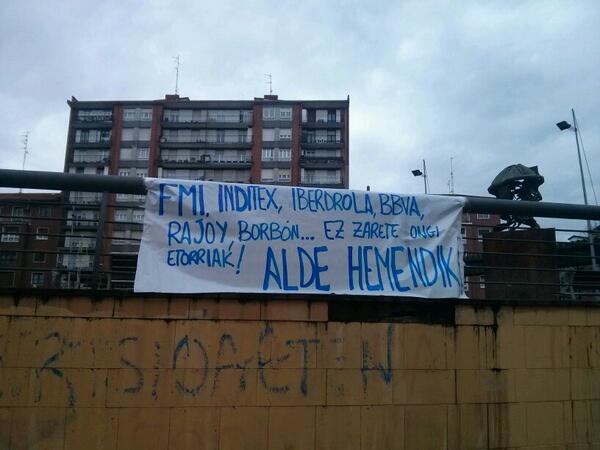 FMI, INDITEX, IBERDROLA, BBVA,
RAJOY, BORBÓN... EZ ZARETE ONGI
ETORRIAK! ALDE HEMENDIK